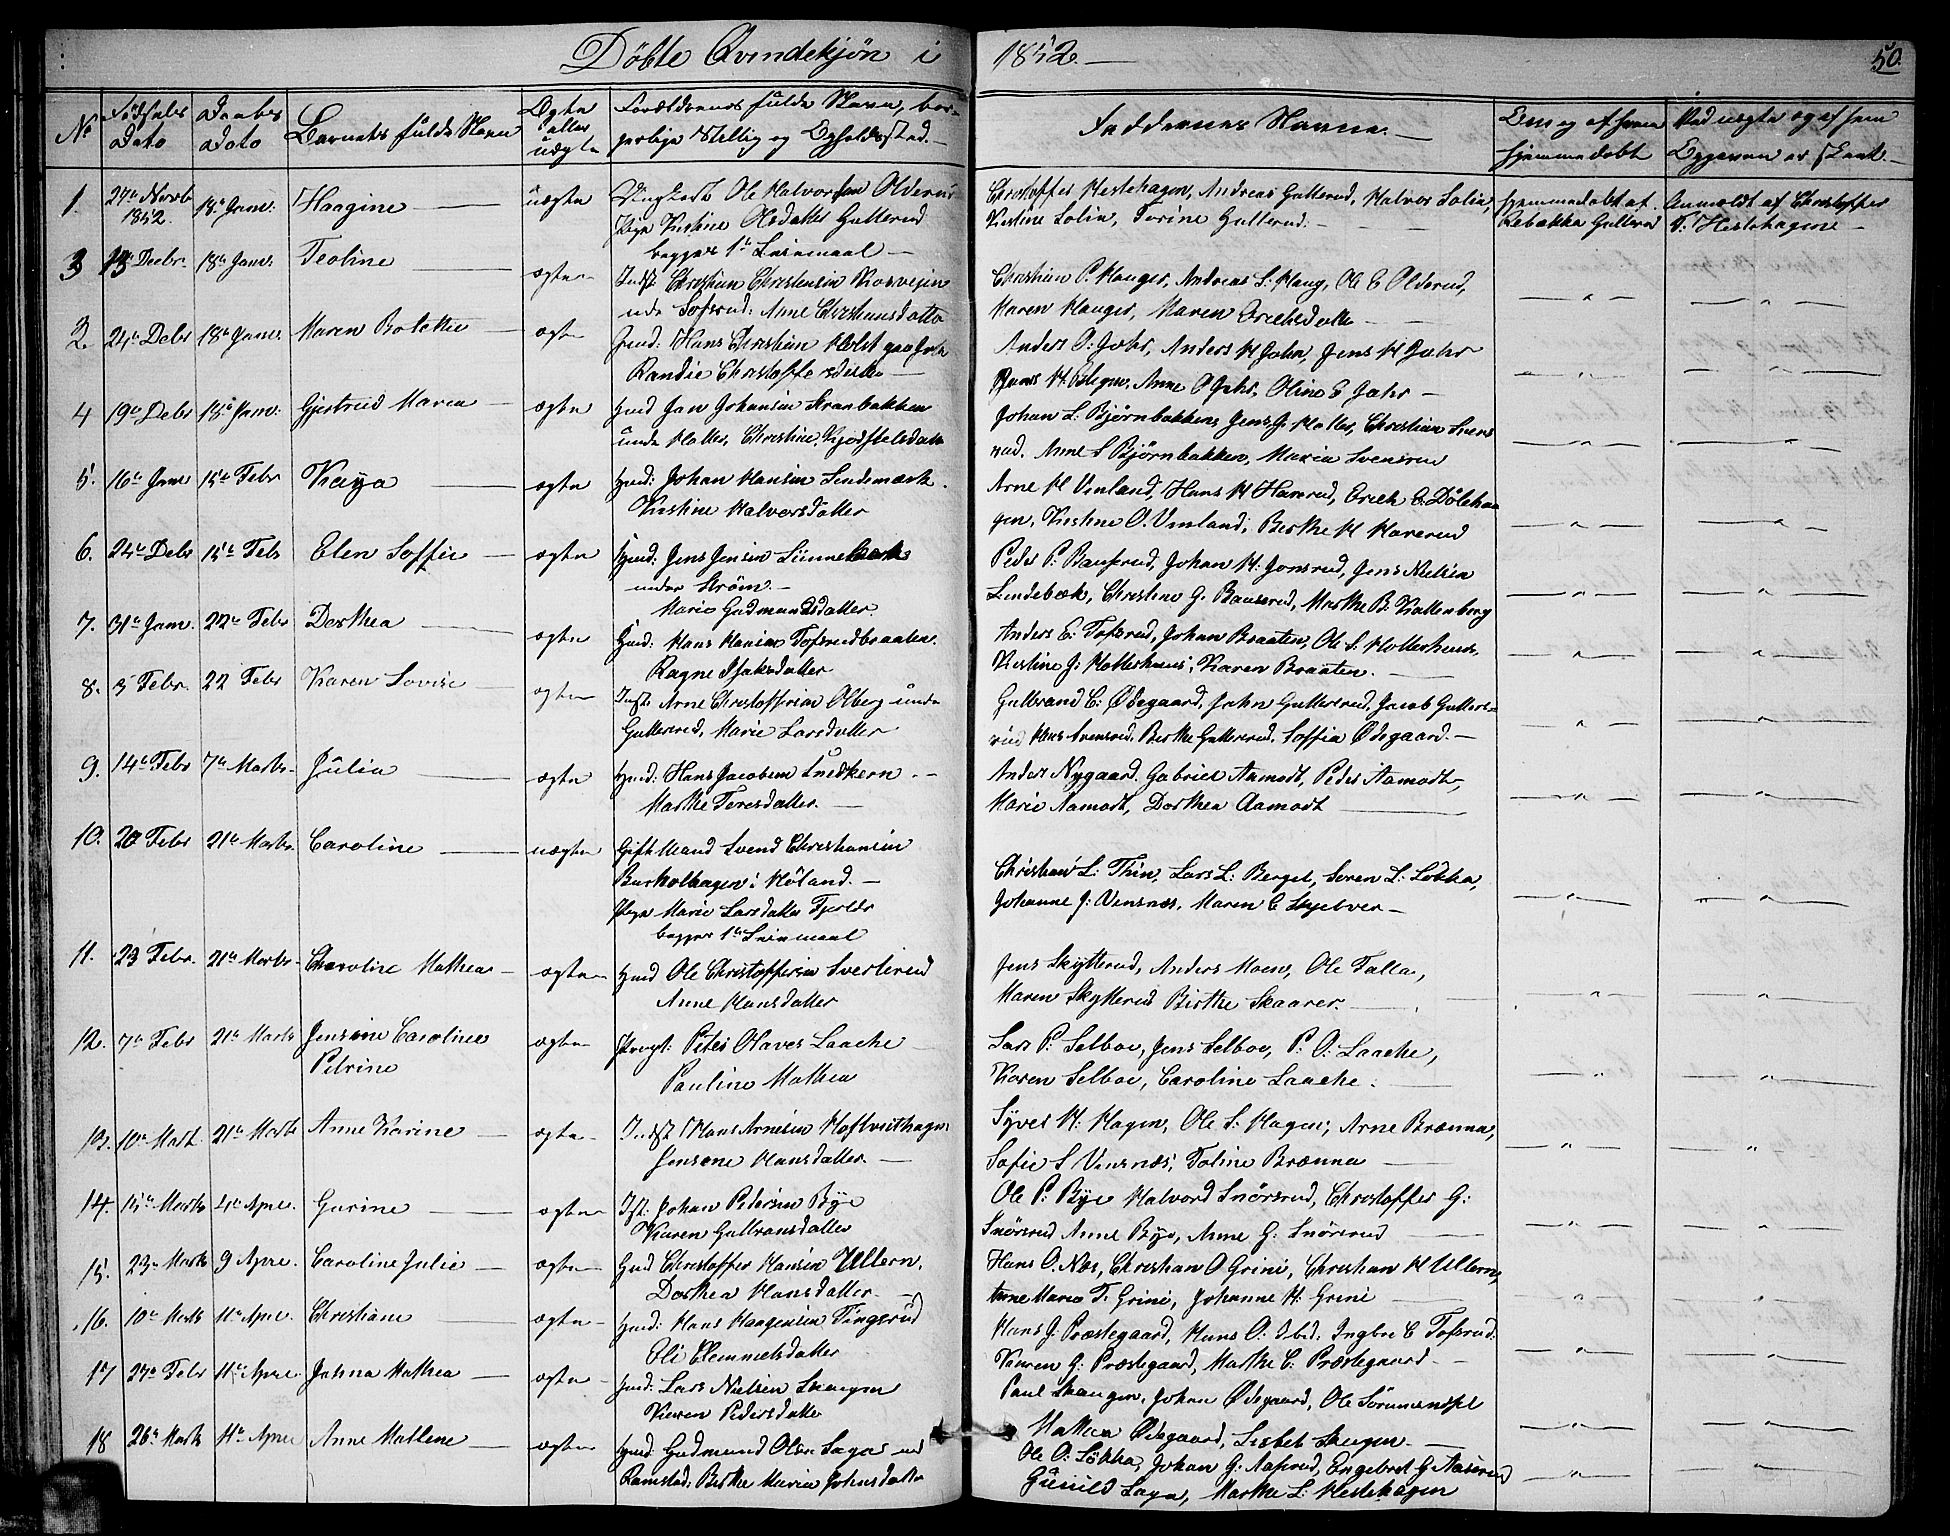 Döbte Qvindekjön i 1852.
50.
No
Födsels Dato
Daabs Dato
Barnets fulde Navn
Ægte eller uægte
Forældrenes fulde Navn, bor-
gerlige Stillig og Opholdssted.
Faddernes Navne.
Om og af hvem hjemmedöbt
Ved uægte og af hvem Opgaven er skeet
1. 27de Novb 1852. 18de Janr. Haagine uægte Ungkarl Ole Halvorsen Olderud
Pige Kirstine Olsdatter Gullerud
begges 1ste Leiermaal
Christoffer Hestehagen, Andreas Gullerud, Halvor Solia,
Kirstine Solia, Torine Gullerud.
Hjemmedöbt af Rebækka Gullerud
Anmeldt af Christoffer T. Hestehagen
3 13 Decbr. 18de Janr. Teoline ægte Indst Christian Christensen
Sofsrud. Anne Christiansdatter
Christian P. Hauger, Andreas L. Haug, Ole E Olderud,
Maren Hauger, Maren Erichsdatter
2. 24de Debr 18de Janr. Maren Bolette ægte Gmd. Hans Christian Holst paa Jahr
Randie Christoffersdatter
Anders O. Jahr, Anders H Jahr, Jens H Jahr
Anne O Jahr, Oline E Jahr
4 19de Debr 18de Janr. Gjertrud Maria ægte Hmd Jan Johansen Kranbakken
under Holter, Christine Kjostelsdatter
Johan L. Björnbakken, Jens J. Holter, Christian Svens
rud. Anne S Björnbakken, Maria Svensrud
5. 16de Janr 15de Febr Kaya ægte Hmd. Johan Hansen Lindemark.
Kirstine Halvorsdatter
Arne H Vinland, Hans H Harerud, Erich E. Dölehau
gen, Kirstine O. Vinland, Berthe H Harerud
6. 24de Debr 15de Feb Elen Soffie ægte Hmd. Jens Jensen Linnebæk
under Ström.
Marie Gudmundsdatter.
Peder P. Bauserud, Johan H. Jonsrud, Jens Nielsen
Lindebæk, Christine G. Bauserud, Marthe B. Kattenborg
7. 31de Janr. 22de Febr Dorthea ægte Hmd. Hans Hansen Tofsrudbraaten.
Ragne Isaksdatter
Anders E. Tofsrud, Johan Braaten, Ole S. Holterhuus,
Kirstine J. Holterhuus, Karen Braaten.
8. 3 Febr. 22 Febr Karen Lovise ægte Indst Arne Christoffersen Olberg under
Gullerud, Marie Larsdatter
Gulbrand C. Ödegaard, John Gullerud, Jacob Guller-
rud Hans Svensrud, Berthe Gullerud. Soffia Ödegaard.
9. 14de Febr 7de Marts Julia ægte Hmd. Hans Jacobsen Snedkern.
Marthe Toresdatter.
Anders Nygaard. Gabriel Aamodt, Peder Aamodt,
Marie Aamodt, Dorthea Aamodt
10. 20 Febr 21de Marts. Caroline uægte Gift Mand Svend Christiansen
Burholhagen i Höland.
Pige Marie Larsdatter Fjeldr
begges 1ste Leiermaal
Christian L. Thin, Lars L. Berget, Soren L. Lökka,
Johanne J. Vensnæs, Maren C Skjelver
11. 23 Febr. 21de Marts. Charoline Mathea ægte Hmd Ole Christoffersen Sverterud
Anne Hansdatter
Jens Skytterud, Anders Moen, Ole Talla,
Maren Skytterud Birthe Skaarer.
12. 7de Febr 21de Marts Jensine Caroline
Petrine ægte Peter Olaves Laache
Pauline Mathea
Lars P. Selboe, Jens Selboe, P. O. Laache,
Karen Selboe, Caroline Laache.
13. 10de Mart. 21de Marts Anne Karine ægte Indst Hans Arnesen Hoftvethagen
Jensine Hansdatter.
Syver H. Hagen, Ole S. Hagen, Arne Brænna,
Sofie S Vensnæs, Toline Brænna
14. 15de Marts 4de Apre. Gurine ægte Ist. Johan Pedersen Bye
Karen Gulbransdatter
Ole P. Bye Halvord Snörsrud, Christoffer G.
Snörsrud Anne Bye, Anne G. Snörsrud
15. 23de Marts 9 Apre. Caroline Julie ægte Gmd Christoffer Hansen Ullern.
Dorthea Hansdatter
Hans O. Næs, Christian O Grini, Christian H Ullern,
Anne Marie T. Grini, Johanne H. Grini
16. 10de Marts 11de Apre. Christiane ægte Hmd. Hans Haagensen Tingsrud
Oli Clemmetsdatter
Hans J. Præstegaard, Hans O. Ibid. Ingbor C Tofsrud.
Karen G. Præstegaard, Marthe C. Præstegaard
17 27de Febr 11de Apre Johna Mathea ægte Hmd. Lars Nielsen Skaugen
Karen Pedersdatter
Paul Skaugen, Johan Ödegaard, Ole Sörumenspl
Mathea Ödegaard, Lisbet Skaugen.
18 26de Marts 11de Apre Anne Mathene ægte Hmd. Gudmund Olsen Saga
Ramstad. Berthe Marie Johnsdatter
Ole O. Lökka, Johan G. Aaserud, Engebret G Aaserud
Gunild Saga, Marthe L. Hestehagen